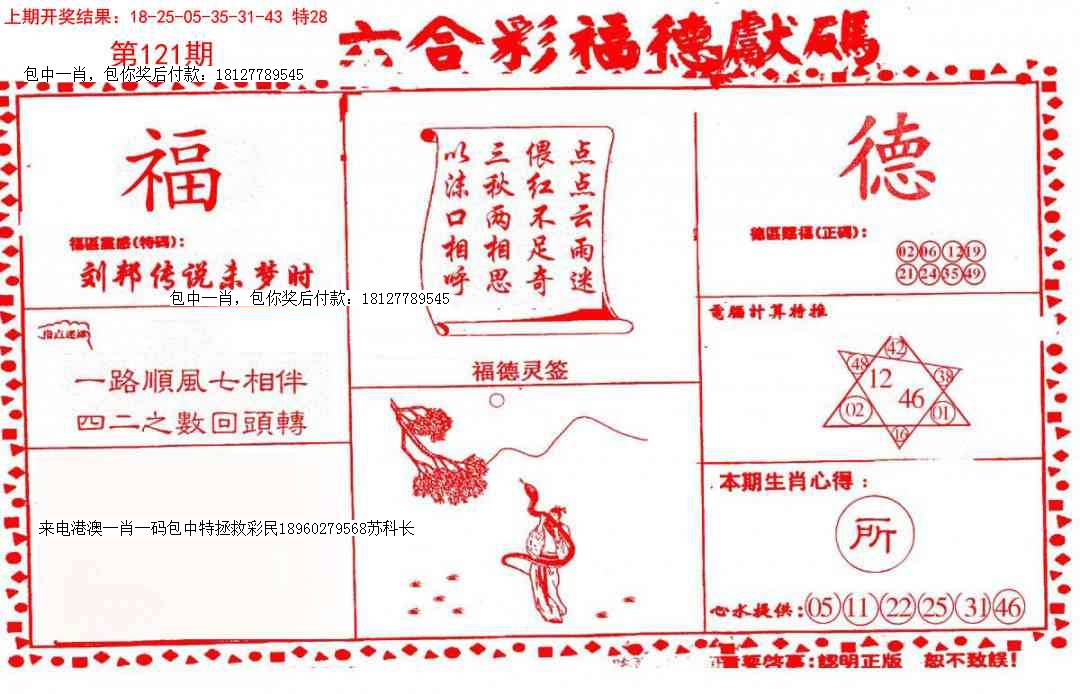 上期开奖结果：18-25-05-35-31-43 特28
第121期
六合彩福德獻碼
包中一肖，包你奖后付款：18127789545
福
福區靈感(特碼)：
刘邦传说未梦时
包中一肖，包你奖后付款：18127789545
一路順風七相伴
四二之數回頭轉
来电港澳一肖一码包中特拯救彩民18960279568苏科长
点点云雨迷
偎红不足奇
三秋两相思
以沫口相呼
福德灵签
德
德區賜福(正碼)：
02 06 12 19
21 24 35 49
電腦計算特推
42
48 12 38
46
02 01
16
本期生肖心得：
所
心水提供：05 11 22 25 31 46
重要啓事：認明正版 恕不致誤！